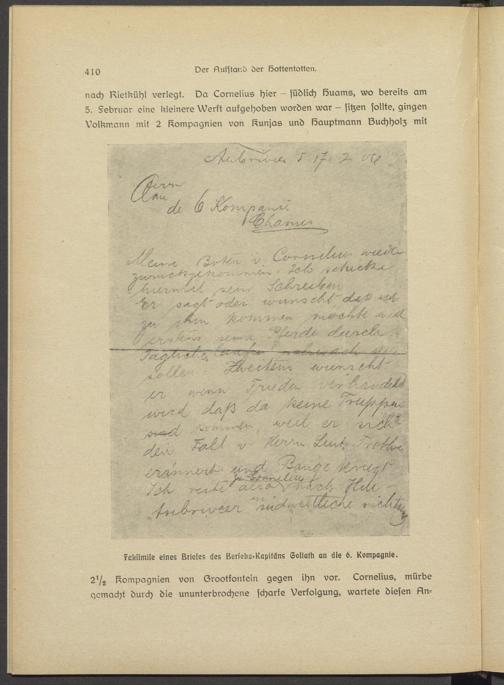 410
Der Aufstand der Hottentotten.
nach Rietkühl verlegt. Da Cornelius hier – südlich Huams, wo bereits am
5. Februar eine kleinere Werft aufgehoben worden war – sitzen sollte, gingen
Volkmann mit 2 Kompagnien von Kunjas und Hauptmann Buchholz mit
17 2 06
Herrn
de 6 Kompanie
Chamis
Meine Boten v. Cornelius wieder
zurückgekommen. Ich schicke
hiermit sein Schreiben
Er sagt oder wünscht daß ich
zu ihm kommen möchte und
erstens seine Pferde durch
Tägliche
sollen Zweitens wünscht
er wenn Frieden verhandelt
wird daß da keine Truppen
kommen, weil er sich
den Fall v Herrn Leut.
erinnert und Bange kriegt
zu Cornelius
Ich reite also nach
in südwestliche richtung
Faksimile eines Briefes des Berseba-Kapitäns Goliath an die 6. Kompagnie.
2½ Kompagnien von Grootfontein gegen ihn vor. Cornelius, mürbe
gemacht durch die ununterbrochene scharfe Verfolgung, wartete diesen An-